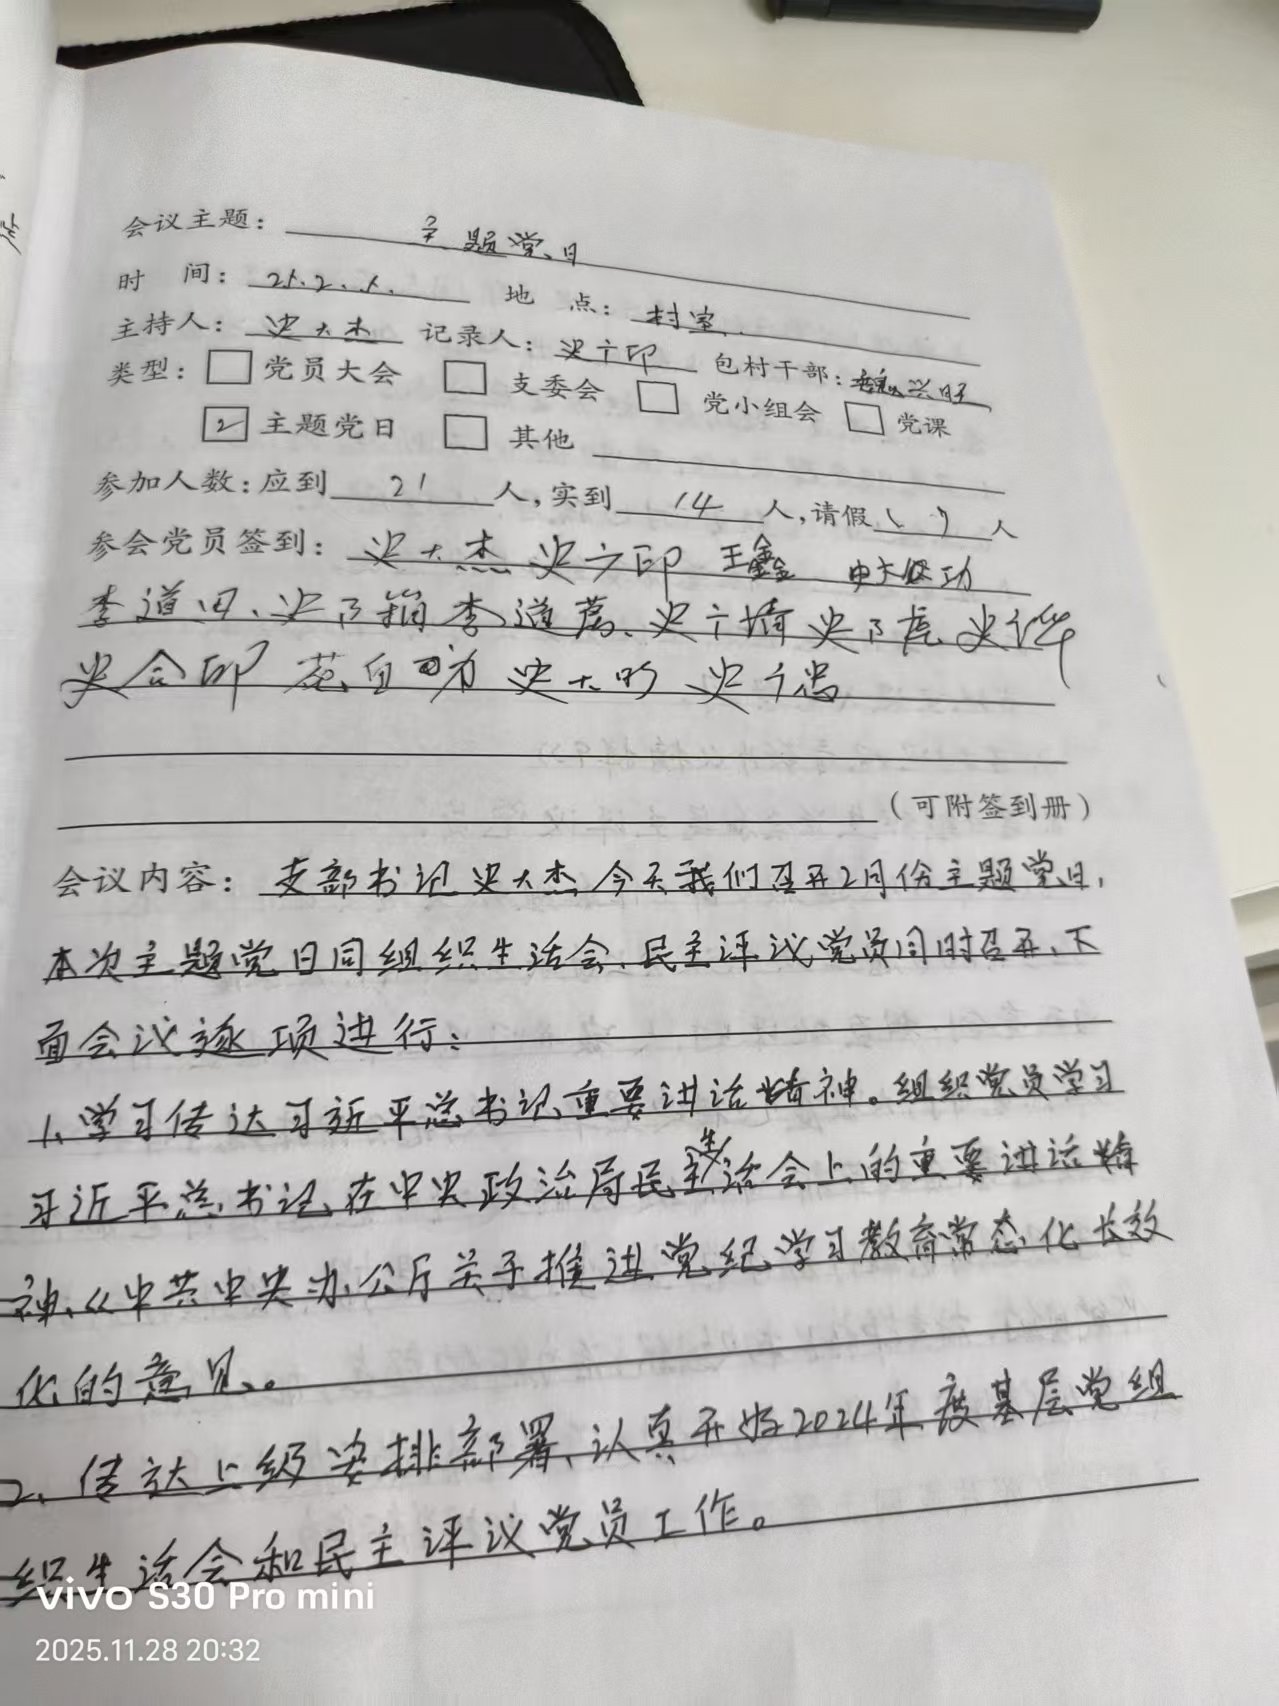 会议主题: 主题党日
时 间: 25.2.5. 地 点: 村室
主持人: 史大杰 记录人: 史广印 包村干部: 魏兴旺
类型: 党员大会 支委会 党小组会 党课
主题党日 其他
参加人数: 应到 21 人, 实到 14 人, 请假 7 人
参会党员签到: 史大杰 史广印 王鑫
李道田、史 李道 史 史 虎 史
史合印 史大 史 忠
(可附签到册)
会议内容: 支部书记史大杰今天我们召开2月份主题党日,
本次主题党日同组织生活会、民主评议党员同时召开、下
面会议逐项进行:
1、学习传达习近平总书记重要讲话精神。组织党员学习
习近平总书记在中央政治局民主生活会上的重要讲话精
神、《中共中央办公厅关于推进党纪学习教育常态化长效
化的意见。
2、传达上级安排部署、认真开好2024年度基层党组
织生活会和民主评议党员工作。
vivo S30 Pro mini
2025.11.28 20:32